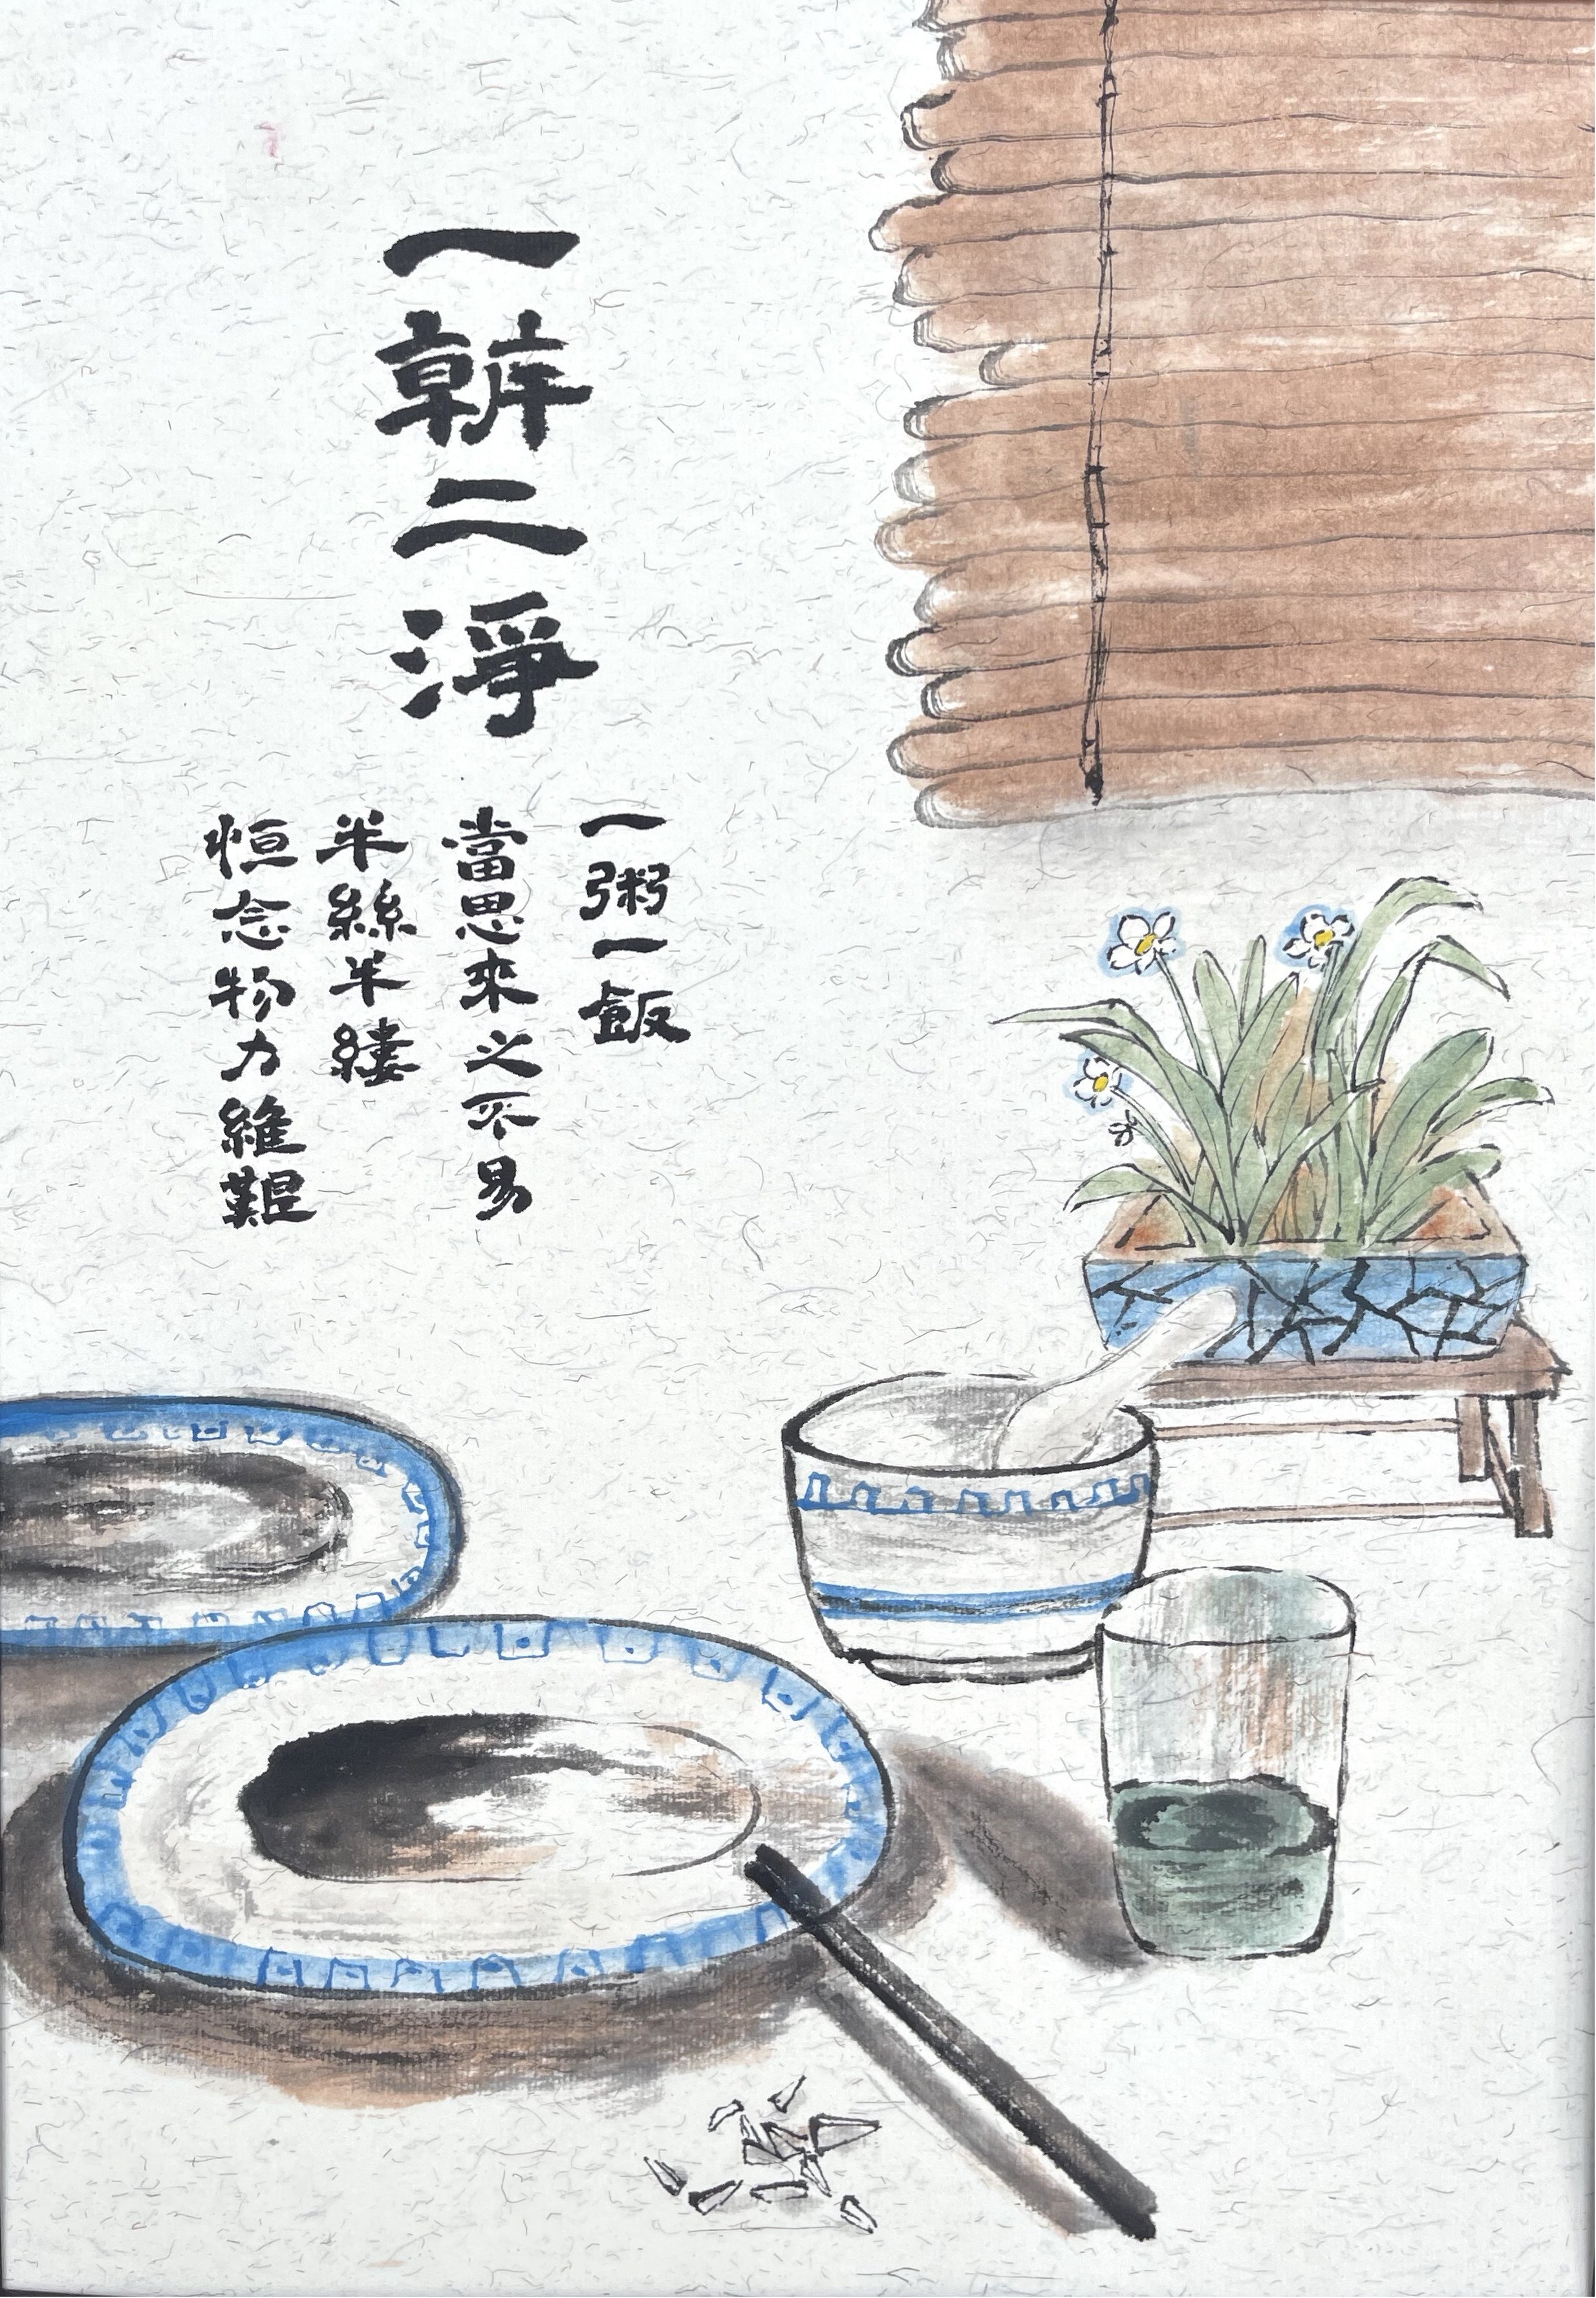 一幹二淨
一粥一飯
當思來之不易
半絲半縷
恒念物力維艱